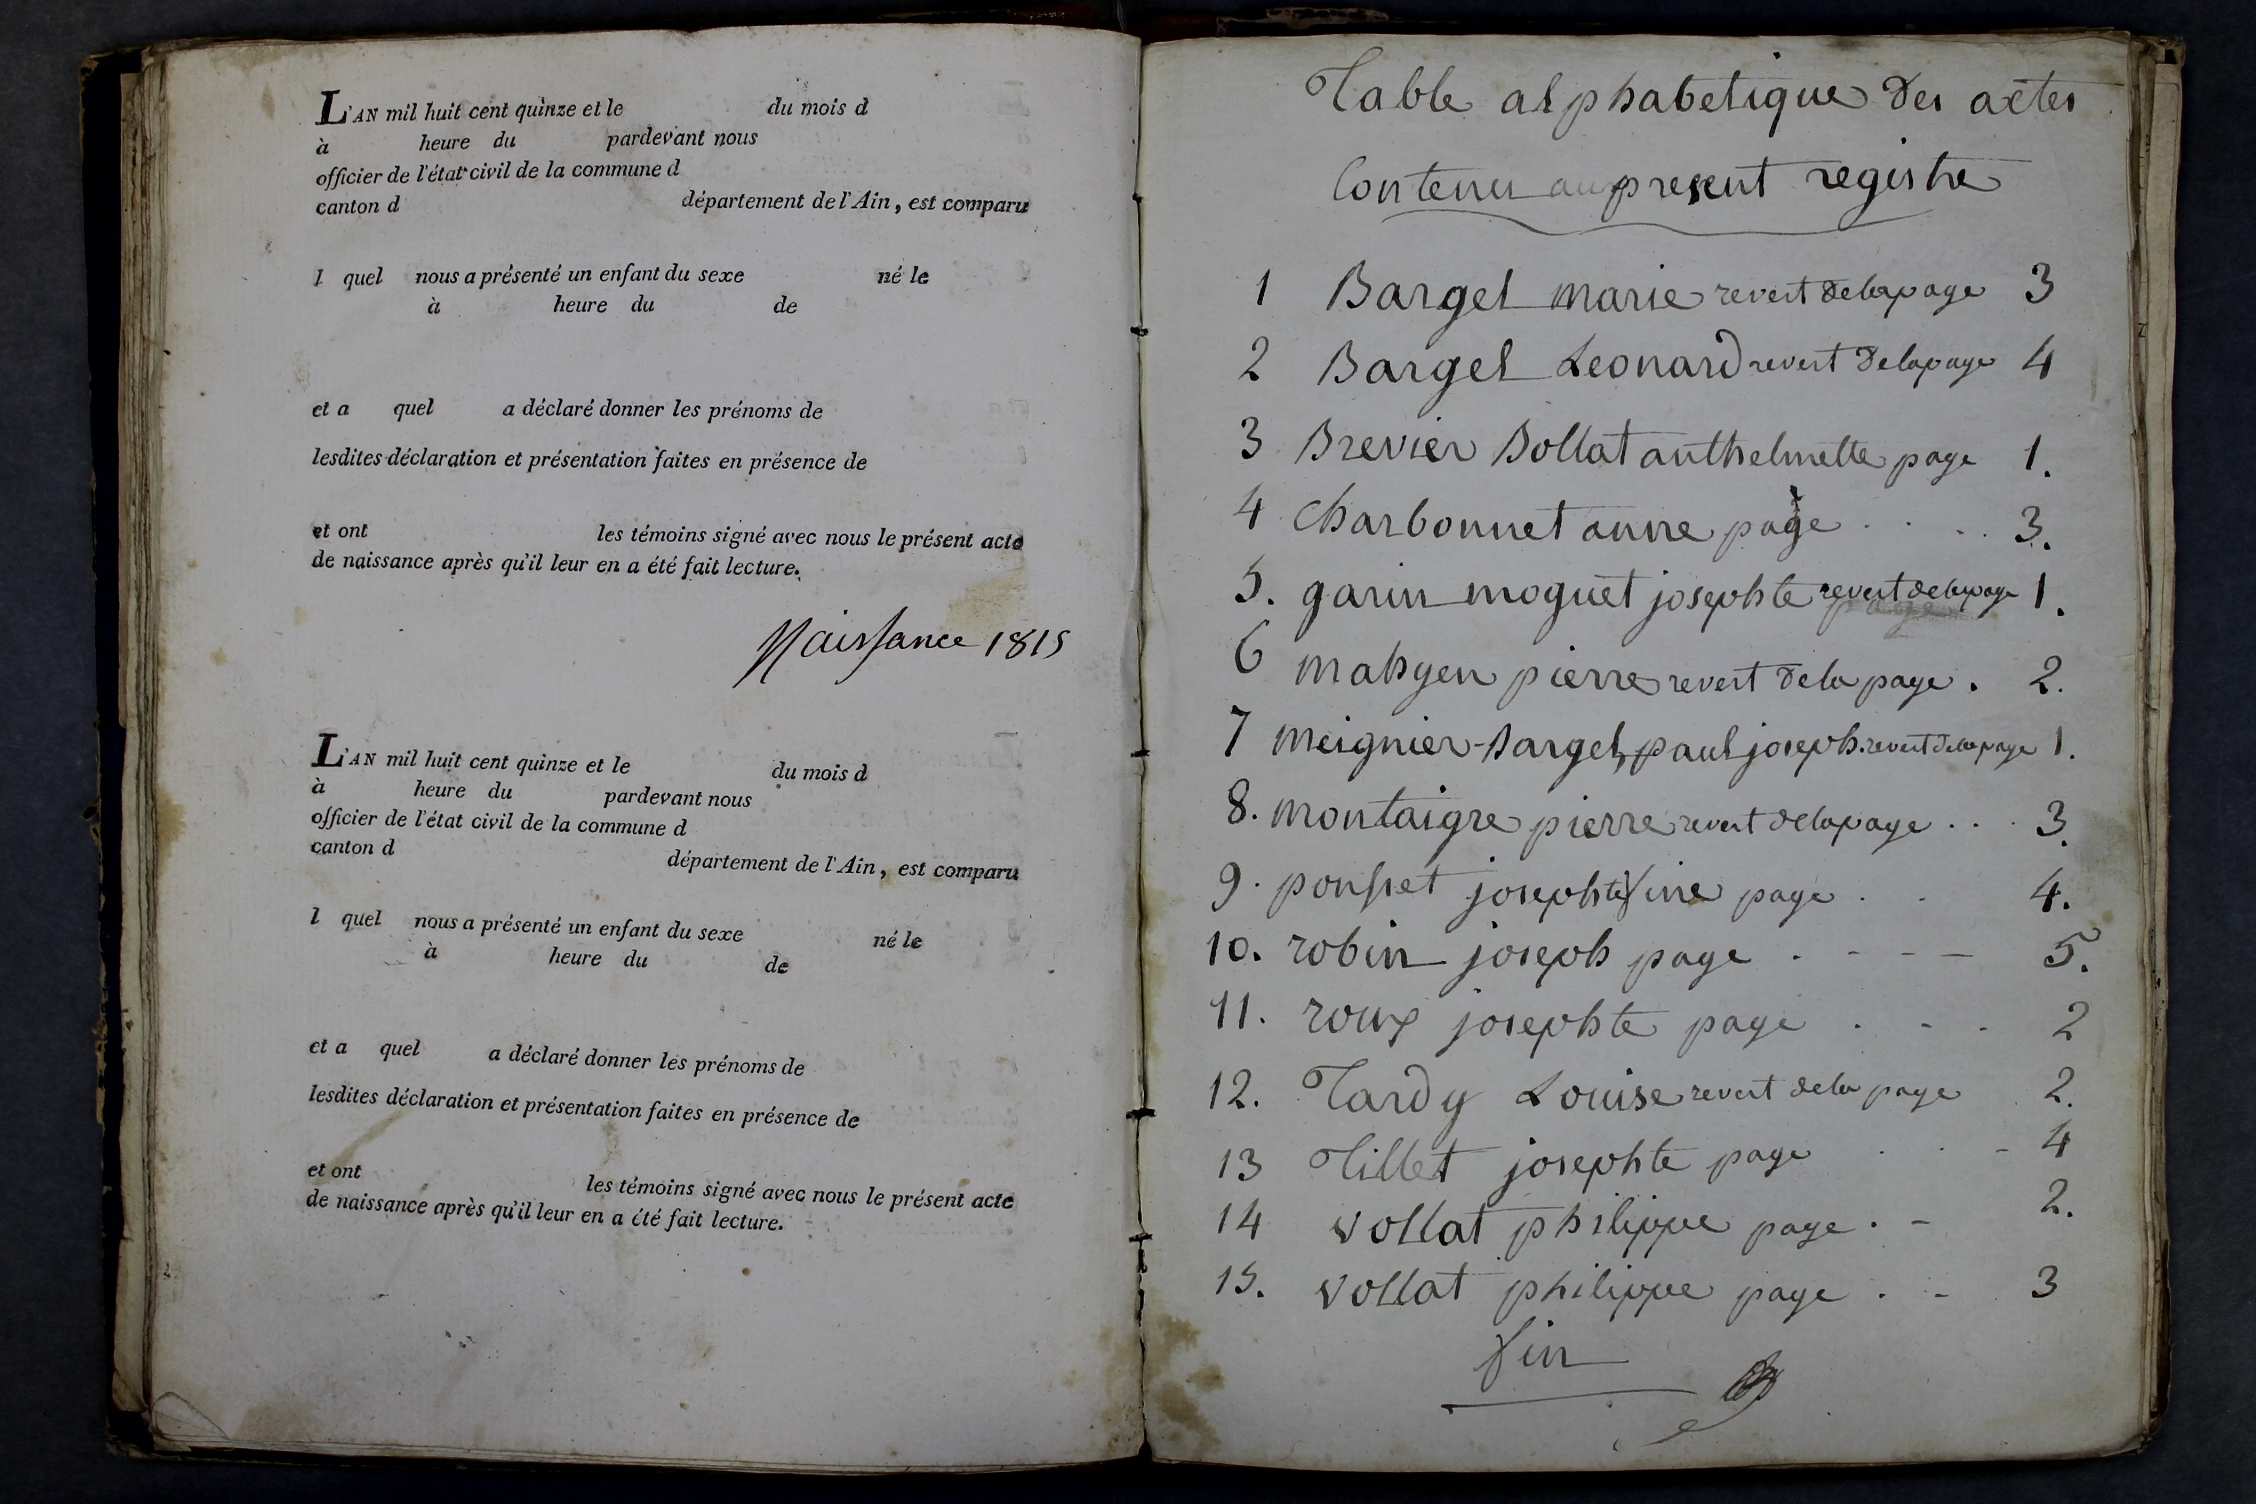 L'AN mil huit cent quinze et le du mois d
à heure du pardevant nous
officier de l'état civil de la commune d
canton d département de l'Ain, est comparu
l quel nous a présenté un enfant du sexe né le
à heure du de
et a quel a déclaré donner les prénoms de
lesdites déclaration et présentation faites en présence de
et ont les témoins signé avec nous le présent acte
de naissance après qu'il leur en a été fait lecture.
Naissance 1815
L'AN mil huit cent quinze et le du mois d
à heure du pardevant nous
officier de l'état civil de la commune d
canton d département de l'Ain, est comparu
l quel nous a présenté un enfant du sexe né le
à heure du de
et a quel a déclaré donner les prénoms de
lesdites déclaration et présentation faites en présence de
et ont les témoins signé avec nous le présent acte
de naissance après qu'il leur en a été fait lecture.
Table alphabetique des actes
Contenus au present registre
1 Bargel marie revert de la page 3
2 Bargel Leonard revert de la page 4
3 Brevier Bollat anthelmette page 1.
4 Charbonnet anne page . . . . 3.
5. garin moguet josephte revert de la page 1.
6 mahyen pierre revert de la page . 2.
7 meignier-Bargel, paul joseph revert de la page 1.
8. montaigre pierre revert de la page . . . 3.
9. ponsset josephte fine page . . 4.
10. robin joseph page . - - - 5.
11. roux josephte page . - - 2
12. Tardy Louise revert de la page 2.
13 Tillet josephte page . . - 4
14 vollat philippe page . - 2.
15. vollat philippe page . - 3
fin